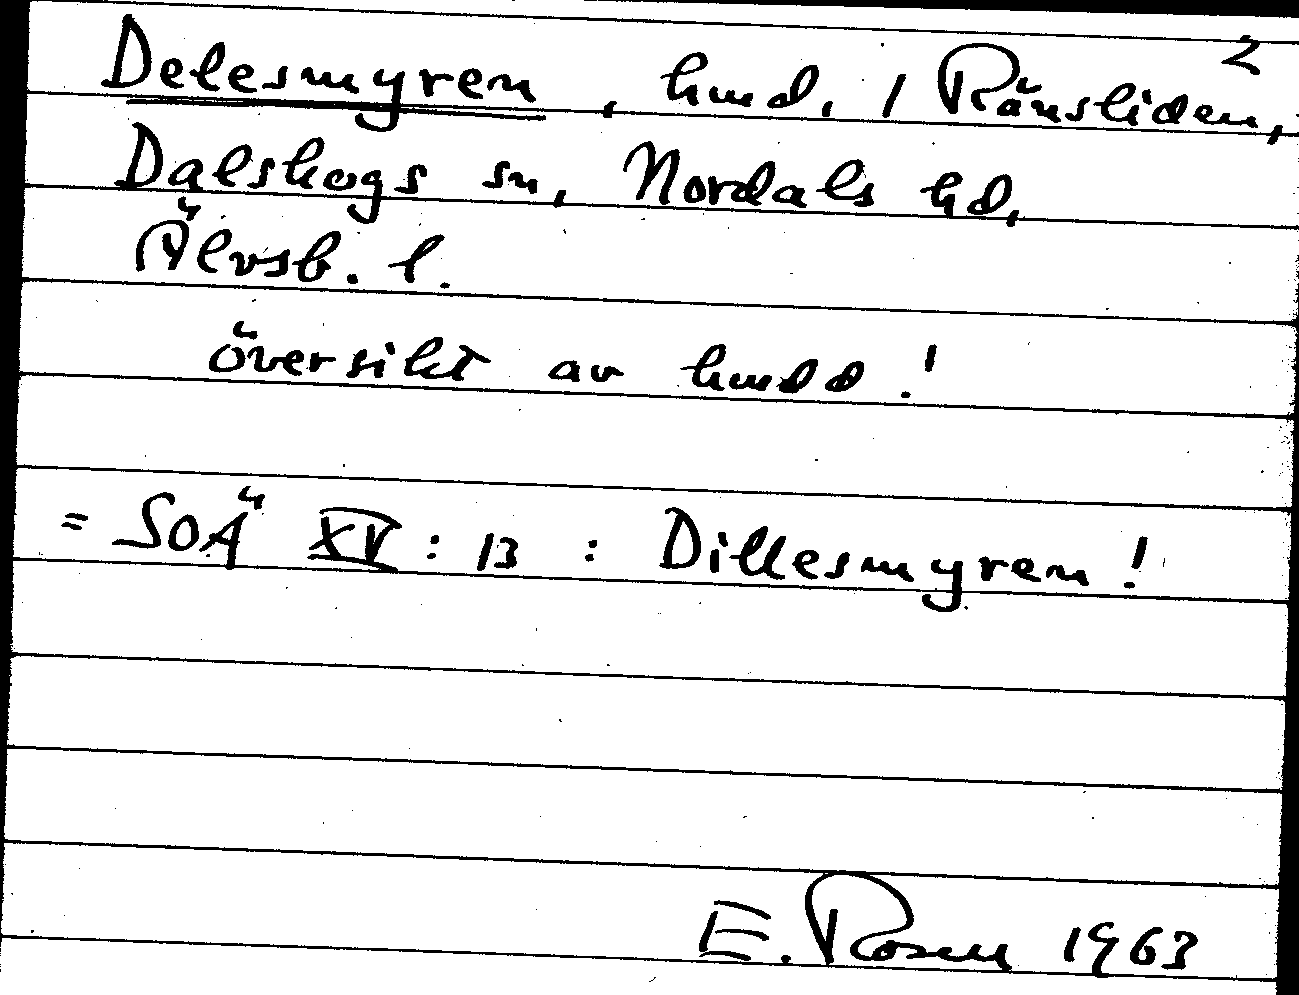 2
Delesmyren, hmd. / Ränsliden,
Dalskogs sn, Nordals hd,
Älvsb. l.
översikt av hmdd!
= SOÄ XV : 13 : Dillesmyren!
E. Rosen 1963